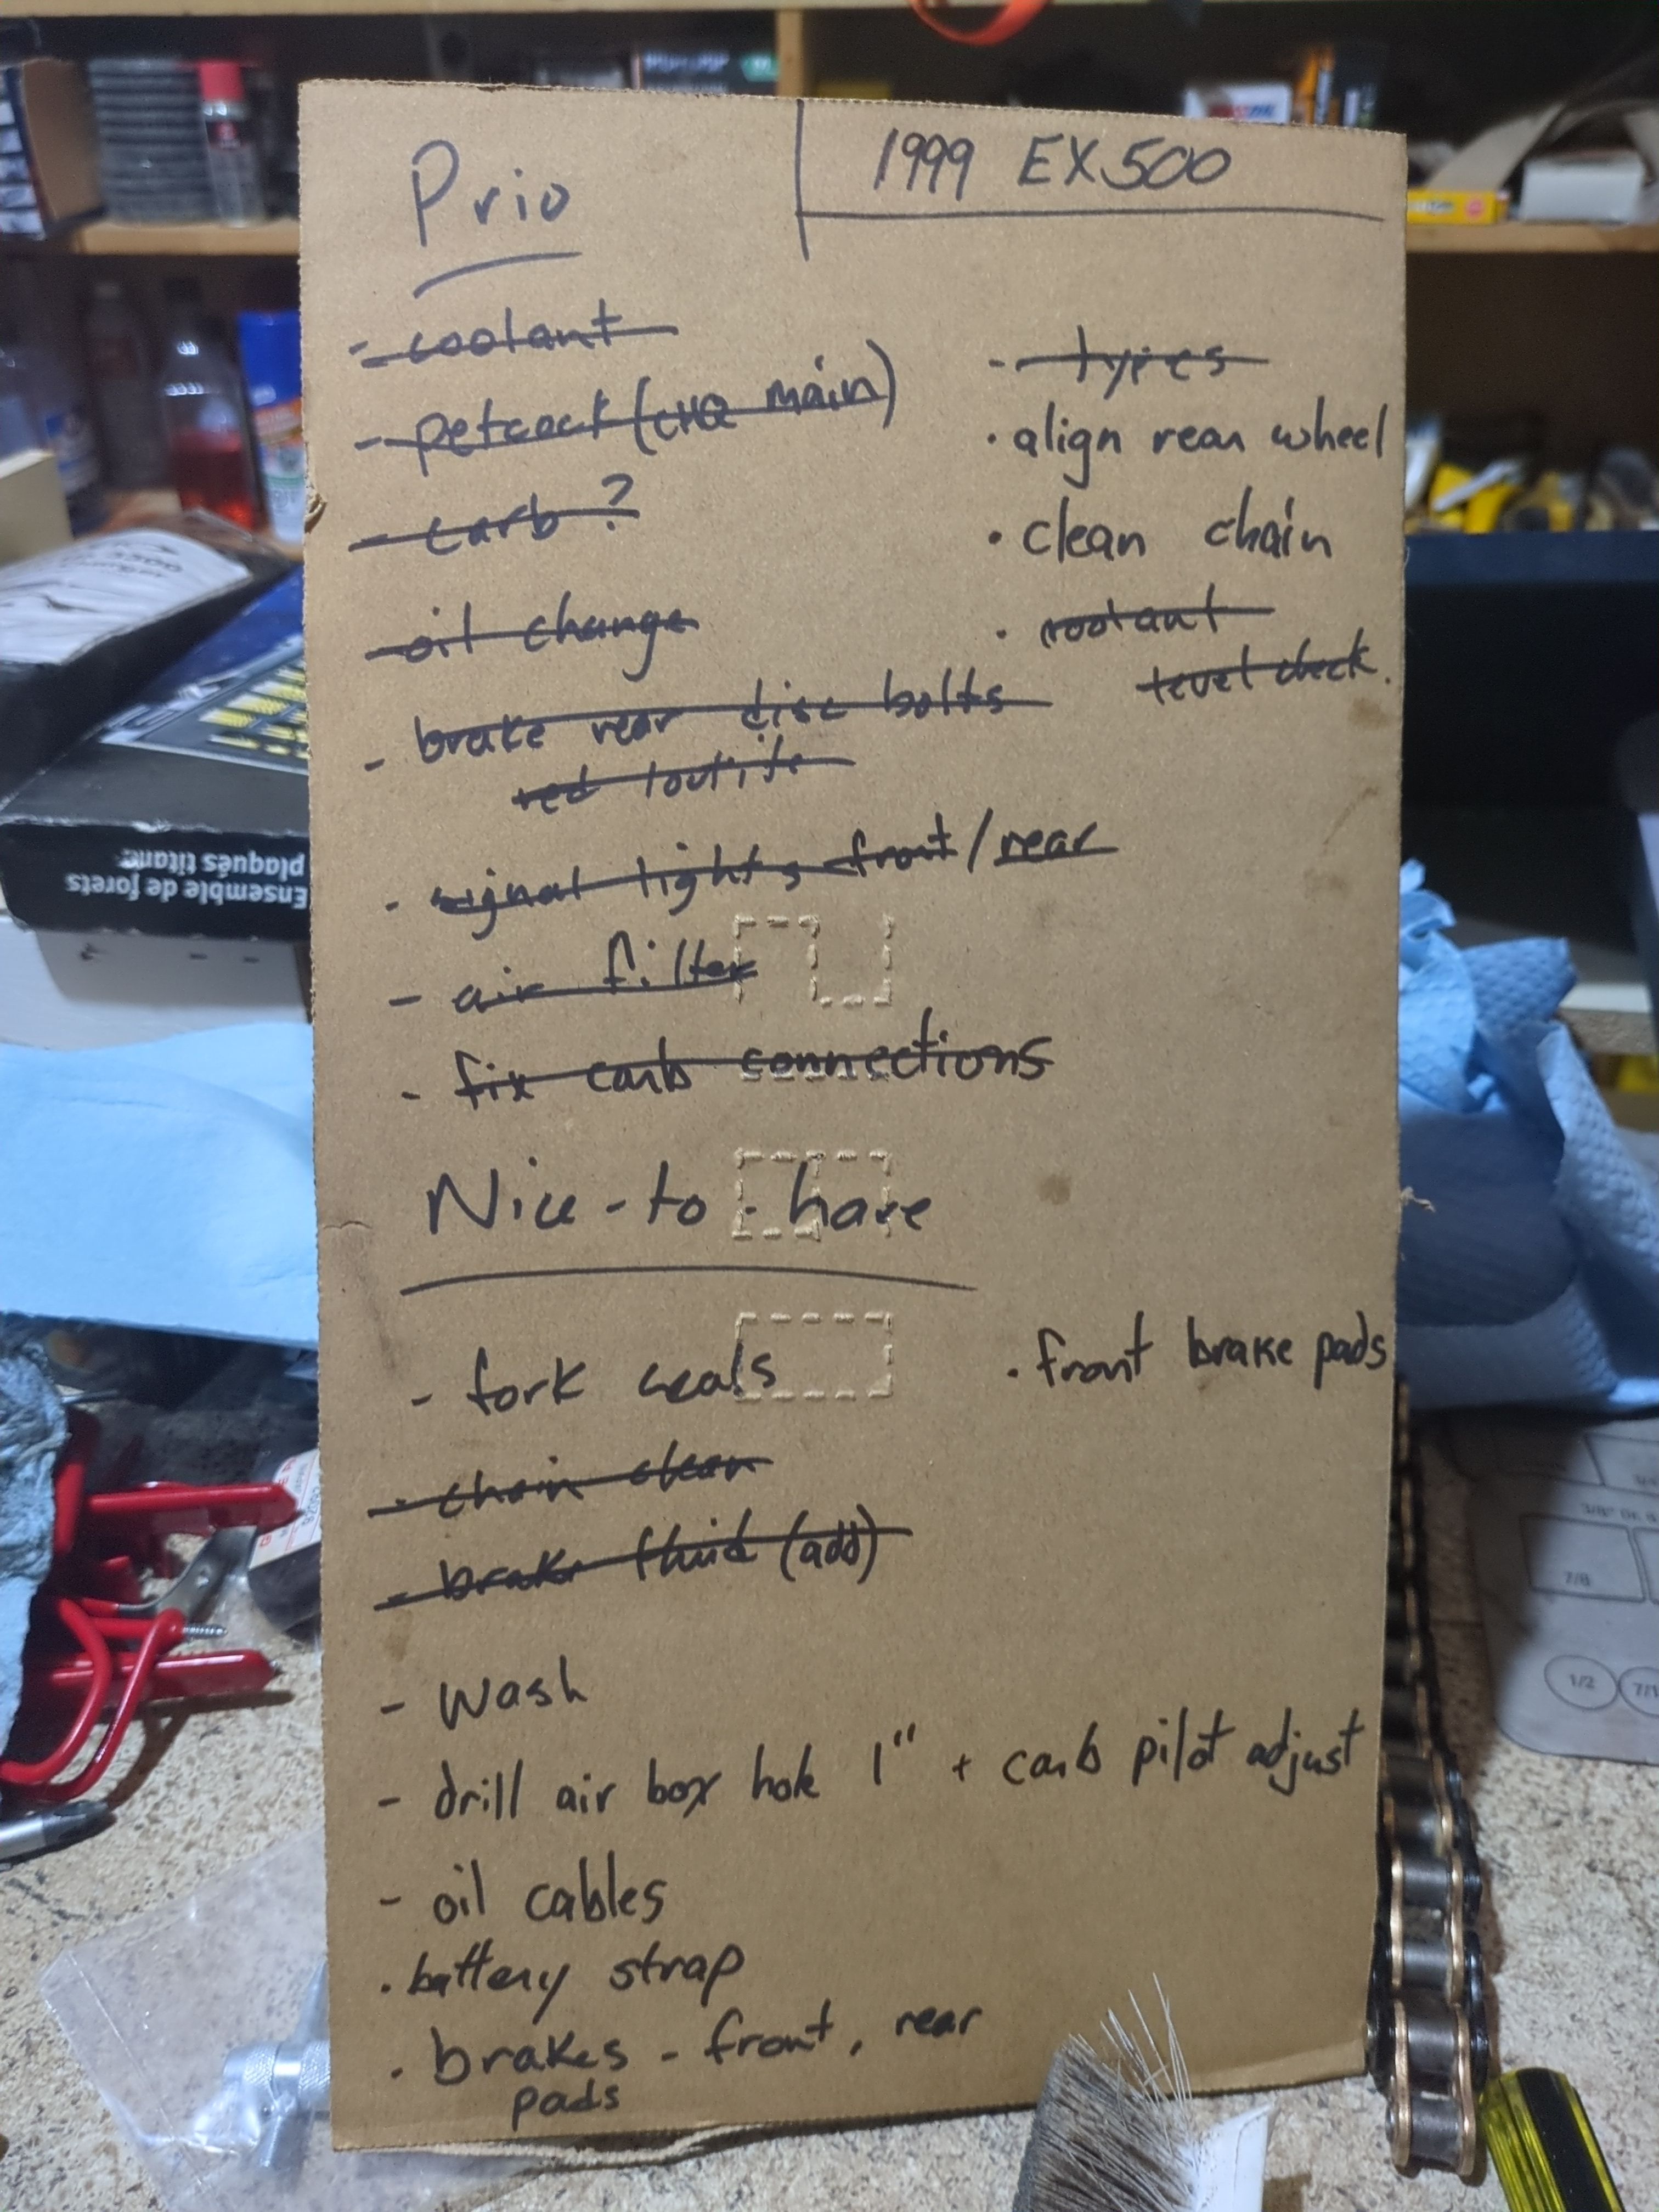 Prio
1999 EX500
- coolant
- petcock (CHQ main)
- carb ?
- oil change
- brake rear disc bolts
red loctite
- signal lights front/rear
- air filter
- fix carb connections
- types
· align rear wheel
· clean chain
· coolant
level check.
Nice-to-have
- fork seals
- chain clean
- brake fluid (add)
- wash
- drill air box hole 1" + carb pilot adjust
- oil cables
· battery strap
· brakes - front, rear
pads
· front brake pads
Ensemble de forets
plaqués titane
7/8
1/2